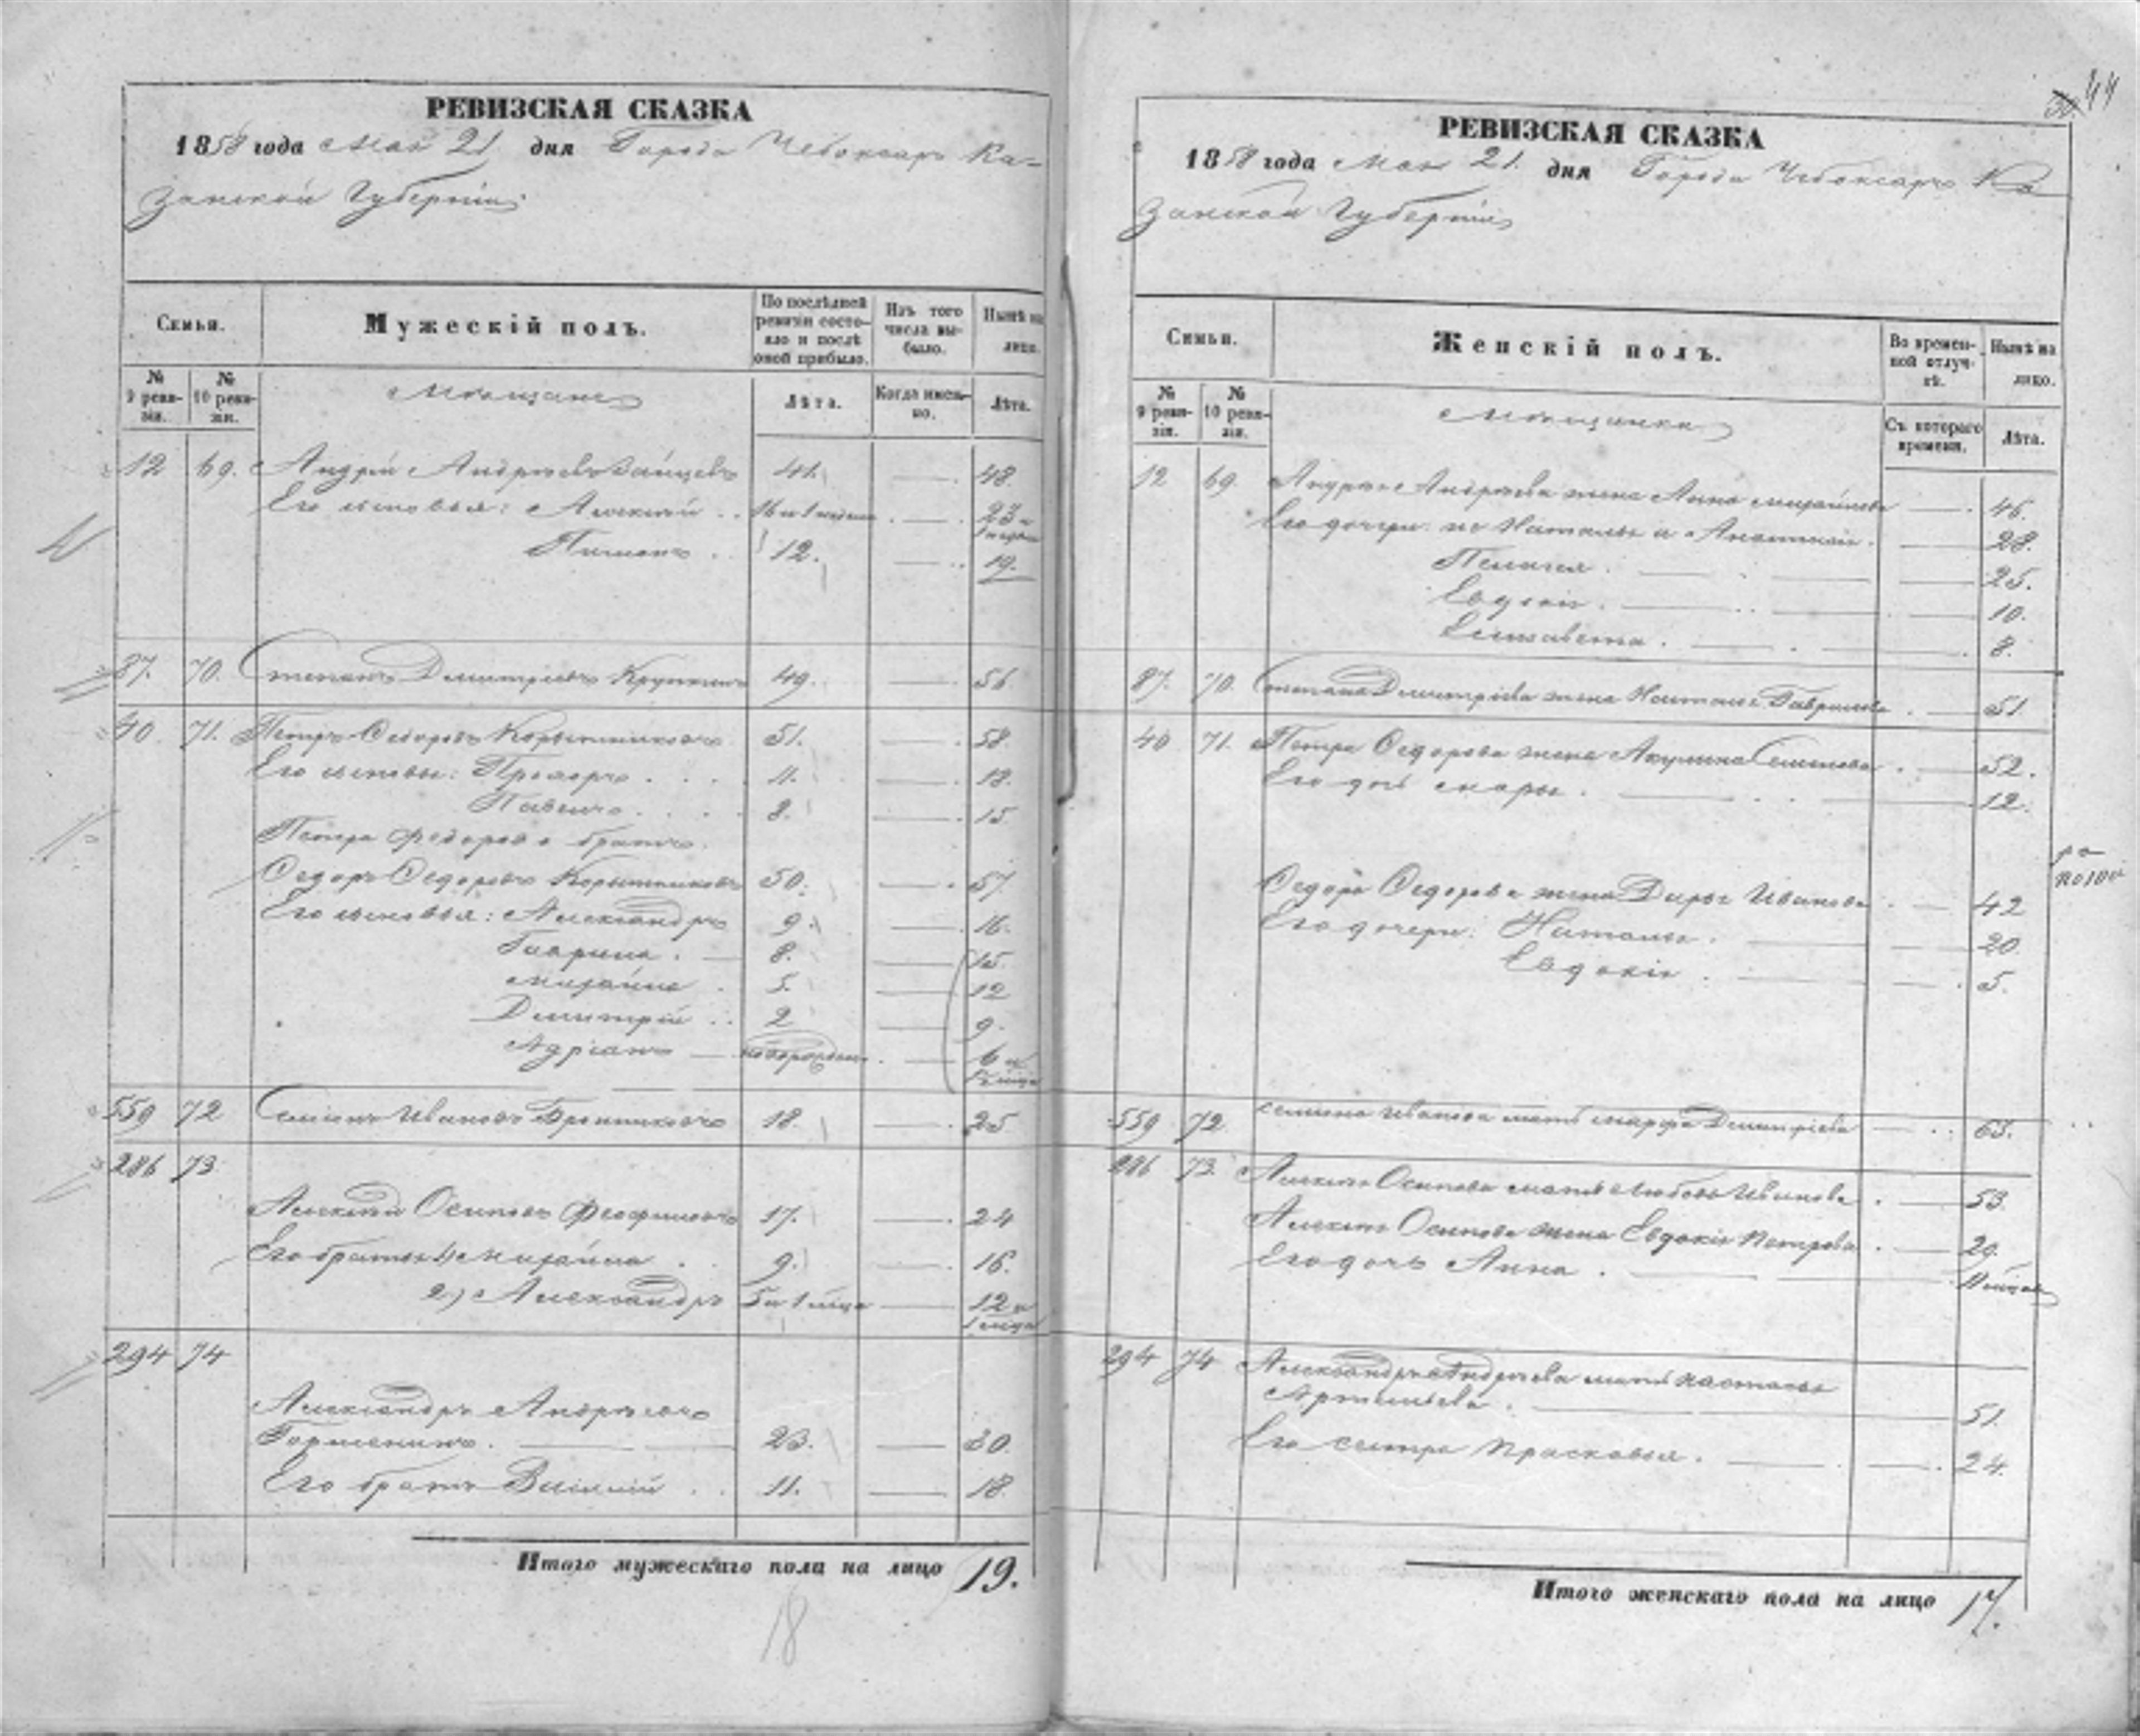 44
РЕВИЗСКАЯ СКАЗКА
1858 года Мая 21 дня Города Чебоксаръ Ка-
занской Губерніи
Семьи.
Мужескій полъ.
По послѣдней ревизіи состояло и послѣ оной прибыло.
Изъ того числа выбыло.
Нынѣ на лицо.
№ 9 ревизіи.
№ 10 ревизіи.
Мѣщане
Лѣта.
Когда именно.
Лѣта.
12 69. Андрей Андреевъ Зайцевъ 41. 48.
Его сыновья: Алексей 16 и 1 неделя 23 и
12. 19.
87. 70. Степанъ Дмитріевъ Крупкинъ 49. 56.
40 71. Петръ Седоровъ Корытниковъ 51. 58.
Его сыновья: Прохоръ 11. 18.
Павелъ 8. 15
Петра Федорова братъ
Седоръ Седоровъ Корытниковъ 50. 57.
Его сыновья: Александръ 9. 16.
Гаврила 8. 15.
Михайла 5. 12
Дмитрій 2 9.
Адріанъ новорожден 6 и
559 72 Семенъ Ивановъ Бронниковъ 18. 25
286 73
Алексей Осиповъ 17. 24
Его братья 1) Михайла 9. 16.
2) Александръ 5 и 1 мѣсяц 12 и
294 74
Александръ Андреевъ
23. 30.
Его братъ Василій 11. 18.
Итого мужескаго пола на лицо 19.
18
РЕВИЗСКАЯ СКАЗКА
1858 года Мая 21. дня Города Чебоксаръ Ка
занской Губерніи
Семьи.
Женскій полъ.
Во временной отлучкѣ.
Нынѣ на лицо.
№ 9 ревизіи.
№ 10 ревизіи.
Мѣщанки
Съ котораго времени.
Лѣта.
12 69. Андрея Андреева жена Анна Михайлова 46.
Его дочери: Наталья 28.
Пелагея 25.
Евдокія 10.
Елизавета 8.
87. 70. Степана Дмитріева жена Наталья Гаврилова 51.
40 71. Петра Седорова жена Акулина Семенова 52.
Его дочь Марья 12.
Седора Седорова жена Дарья Иванова 42
Его дочери: Наталья 20
Евдокія 5.
559 72. Семена Иванова мать Марфа Дмитріева 63.
286 73. Алексея Осипова мать Любовь Иванова 53.
Алексея Осипова жена Евдокія Петрова 29.
Его дочь Анна
294 74 Александра Андреева мать Настасья
Артемьева 51.
Его сестра Прасковья 24.
Итого женскаго пола на лицо 17.